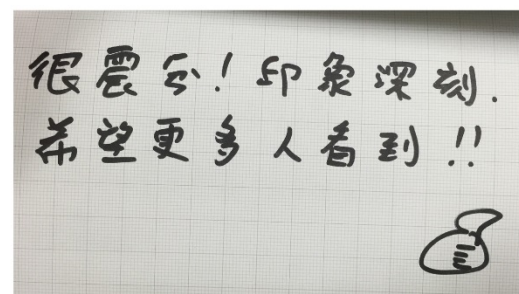 很震!印象深刻.
希望更多人看到!!